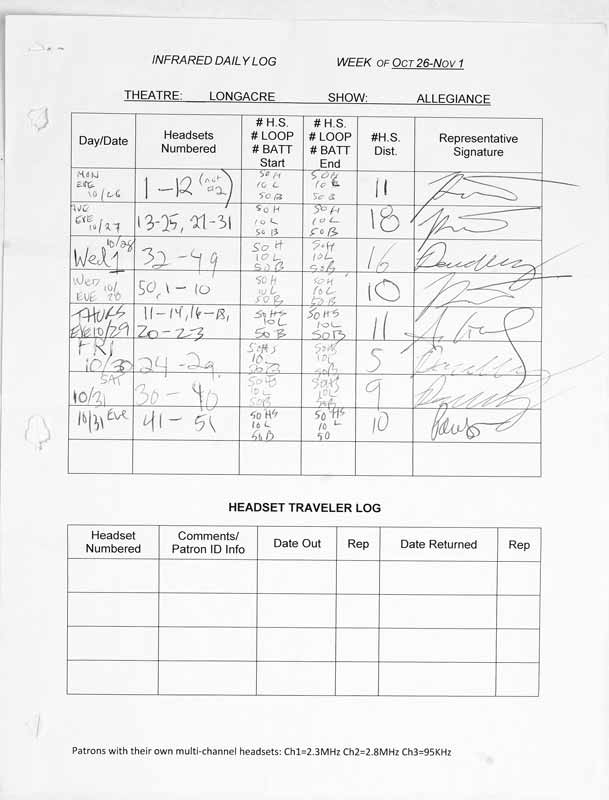 INFRARED DAILY LOG WEEK OF OCT 26-NOV 1
THEATRE: LONGACRE SHOW: ALLEGIANCE
Day/Date Headsets Numbered # H.S. # LOOP # BATT Start # H.S. # LOOP # BATT End #H.S. Dist. Representative Signature
MON EVE 10/26 1-12 (not #2) 50H 10L 50B 50H 10L 50B 11
TUE EVE 10/27 13-25, 27-31 50H 10L 50B 50H 10L 50B 18
Wed 10/28 32-49 50H 10L 50B 50H 10L 50B 16
WED EVE 10/28 50, 1-10 50H 10L 50B 50H 10L 50B 10
THURS EVE 10/29 11-14, 16-18, 20-23 50HS 10L 50B 50H 10L 50B 11
FRI 10/30 24-29 50HS 10L 50B 10L 50B 5
SAT 10/31 30-40 10L 50B 10L 50B 9
10/31 Eve 41-51 50HS 10L 50B 50HS 10L 50 10
HEADSET TRAVELER LOG
Headset Numbered Comments/ Patron ID Info Date Out Rep Date Returned Rep
Patrons with their own multi-channel headsets: Ch1=2.3MHz Ch2=2.8MHz Ch3=95KHz